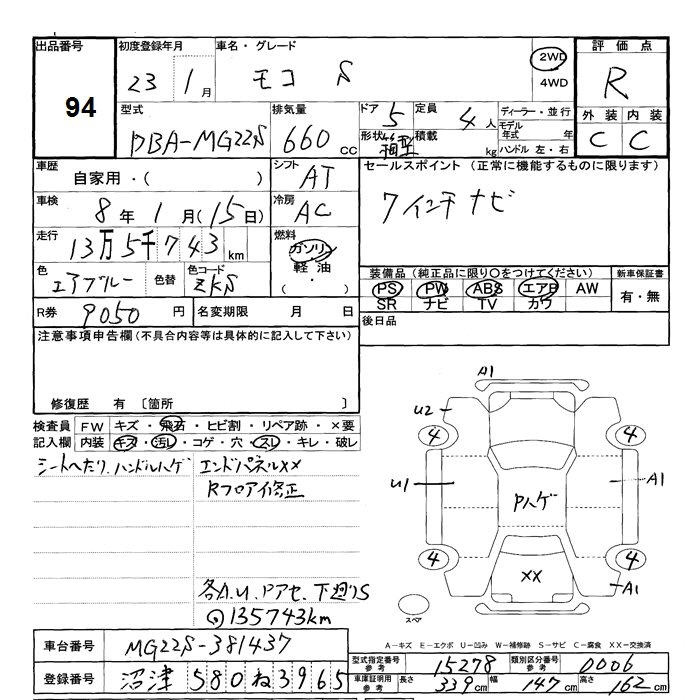 出品番号 初度登録年月 車名・グレード 評価点
94 23 1月 モコ S 2WD 4WD R
型式 排気量 ドア 5 定員 4人 ディーラー・並行 外装 内装
DBA-MG22S 660 cc 形状 箱型 積載 kg モデル年式 年 ハンドル 左・右 C C
車歴 シフト セールスポイント (正常に機能するものに限ります)
自家用・( ) AT
車検 冷房 7インチナビ
8年 1月(15日) AC
走行 燃料
13万5千743km ガソリン 軽油 ( ・ )
色 色替 色コード 装備品(純正品に限り○をつけてください) 新車保証書
エアブルー ZKS PS PW ABS エアB AW 有・無
SR ナビ TV カワ
R券 9050円 名変期限 月 日 後日品
注意事項申告欄(不具合内容等は具体的に記入して下さい)
修復歴 有 〔箇所 〕
検査員 FW キズ・飛石・ヒビ割・リペア跡・×要
記入欄 内装 キズ・汚レ・コゲ・穴・スレ・キレ・破レ
シートへたり、ハンドルハゲ エンドパネルXX
Rフロア修正
各A.U、Pアセ、下廻りS
135743km
A1
U2
4 4
U1 A1
Pハゲ
4 4
XX
A1
スペア
A-キズ E-エクボ U-凹み W-補修跡 S-サビ C-腐食 XX-交換済
車台番号 MG22S-381437
型式指定番号 参考 15278 類別区分番号 参考 0006
登録番号 沼津 580 ね 3965
車庫証明用 参考 長さ 339cm 幅 147cm 高さ 162cm